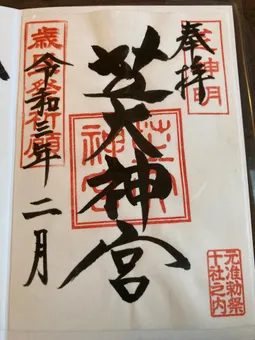 奉拝
神明
芝大神宮
芝大
神宮
令和三年二月
元准勅祭
十社之内